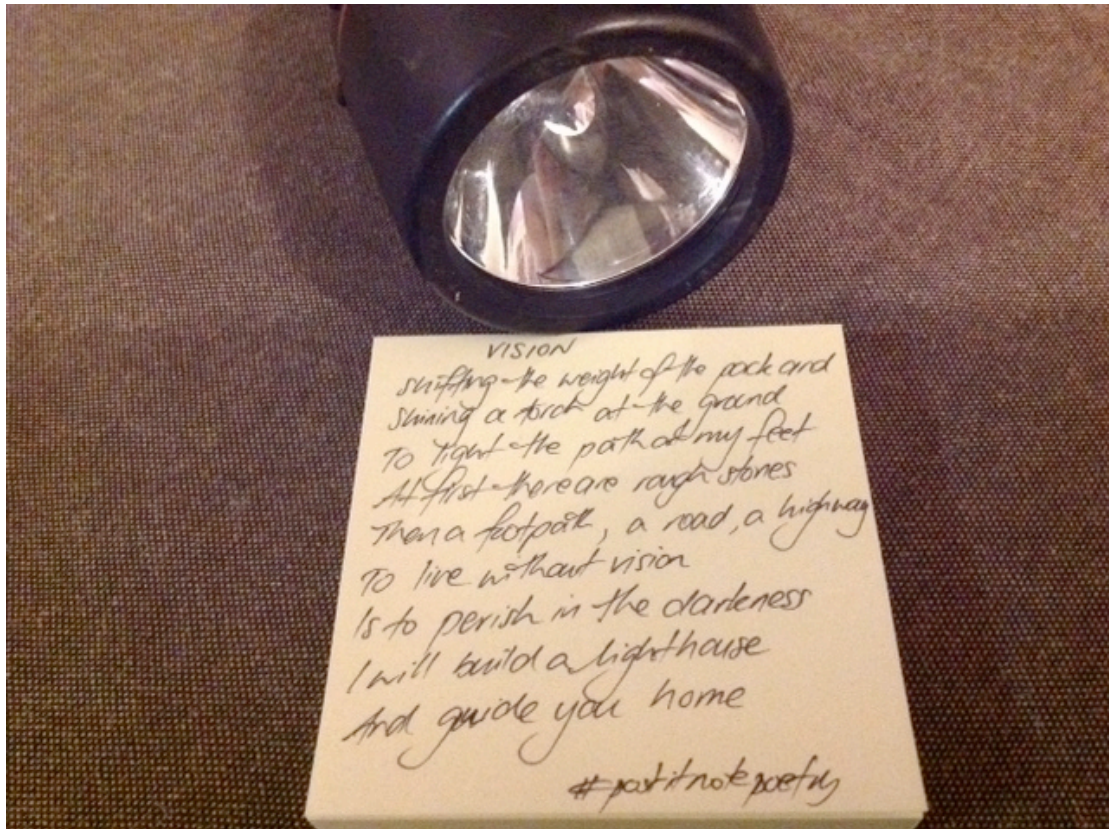 VISION
Shifting the weight of the pack and
Shining a torch at the ground
To light the path at my feet
At first there are rough stones
Then a footpath, a road, a highway
To live without vision
Is to perish in the darkness
I will build a lighthouse
And guide you home
#postitnotepoetry